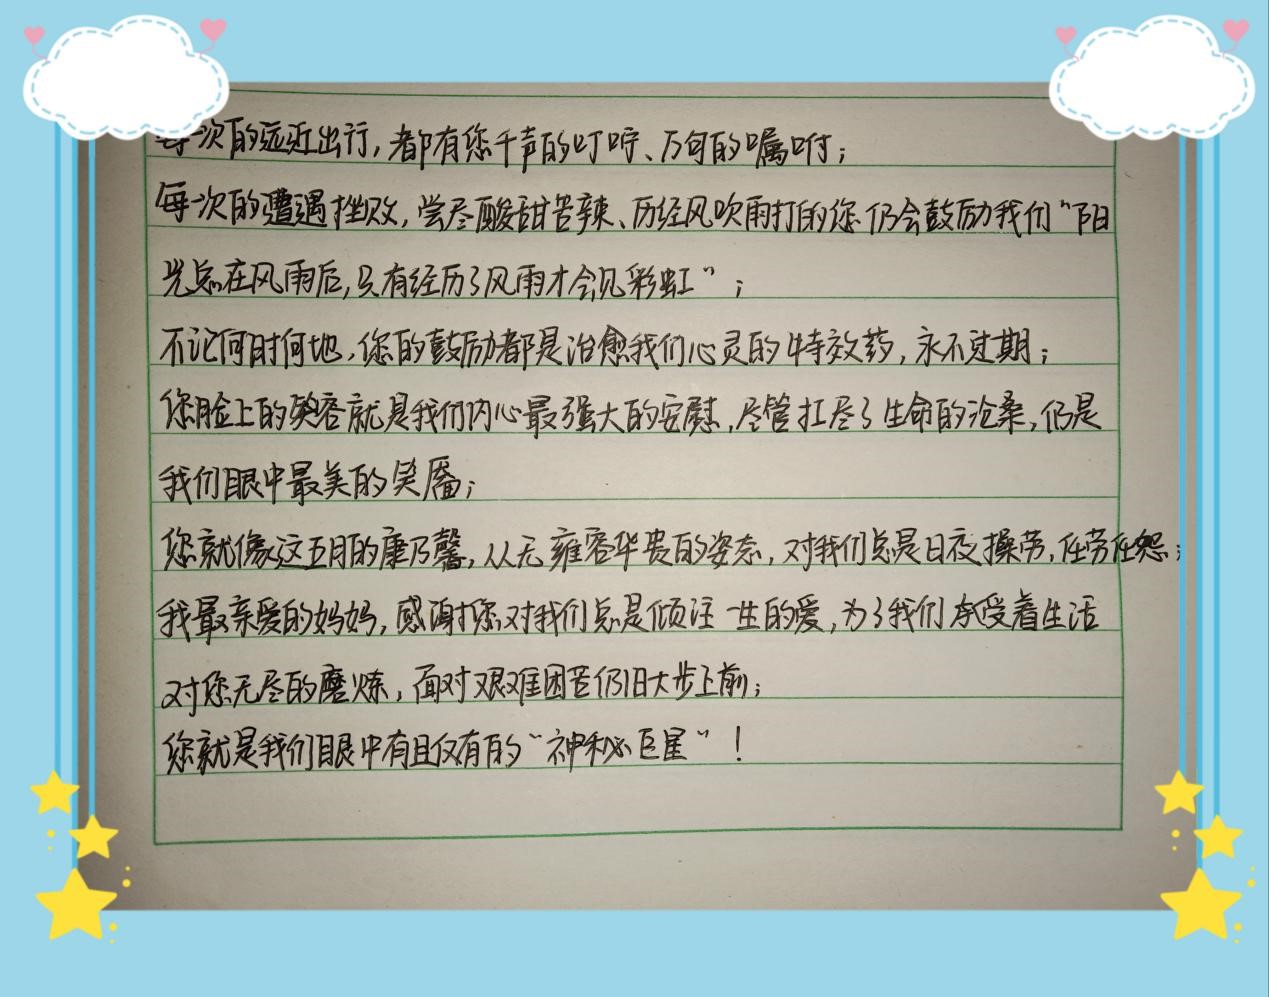 每次的远近出行,都有您千声的叮咛、万句的嘱咐;
每次的遭遇挫败,尝尽酸甜苦辣、历经风吹雨打的您仍会鼓励我们“阳
光总在风雨后,只有经历了风雨才会见彩虹”;
不论何时何地,您的鼓励都是治愈我们心灵的特效药,永不过期;
您脸上的笑容就是我们内心最强大的安慰,尽管扛尽了生命的沧桑,仍是
我们眼中最美的笑靥;
您就像这五月的康乃馨,从无雍容华贵的姿态,对我们总是日夜操劳,任劳任怨;
我最亲爱的妈妈,感谢您对我们总是倾注一生的爱,为了我们承受着生活
对您无尽的磨炼,面对艰难困苦仍旧大步上前;
您就是我们眼中有且仅有的“神秘巨星”!